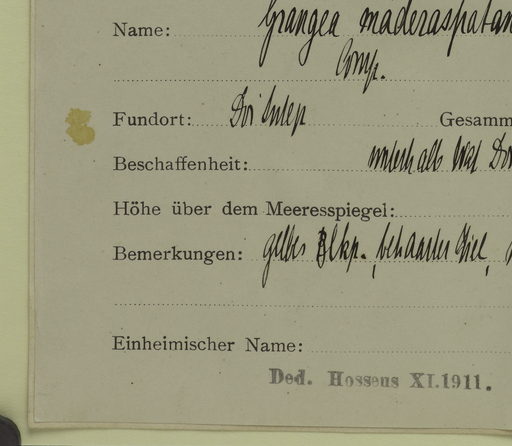 Name: Grangea maderaspatan
Comp.
Fundort: Doi Sutep Gesamm
Beschaffenheit: unterhalb Wat Do
Höhe über dem Meeresspiegel:
Bemerkungen: gelbes Blkp., behaarter Stiel,
Einheimischer Name:
Ded. Hosseus XI.1911.